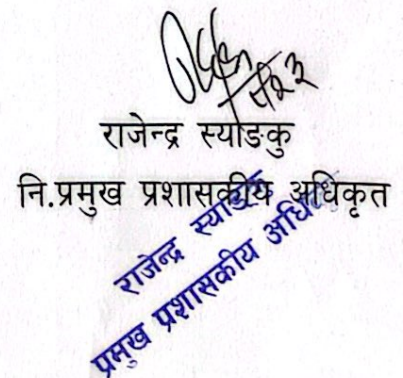 राजेन्द्र स्योङकु
नि.प्रमुख प्रशासकीय अधिकृत
राजेन्द्र
प्रमुख प्रशासकीय